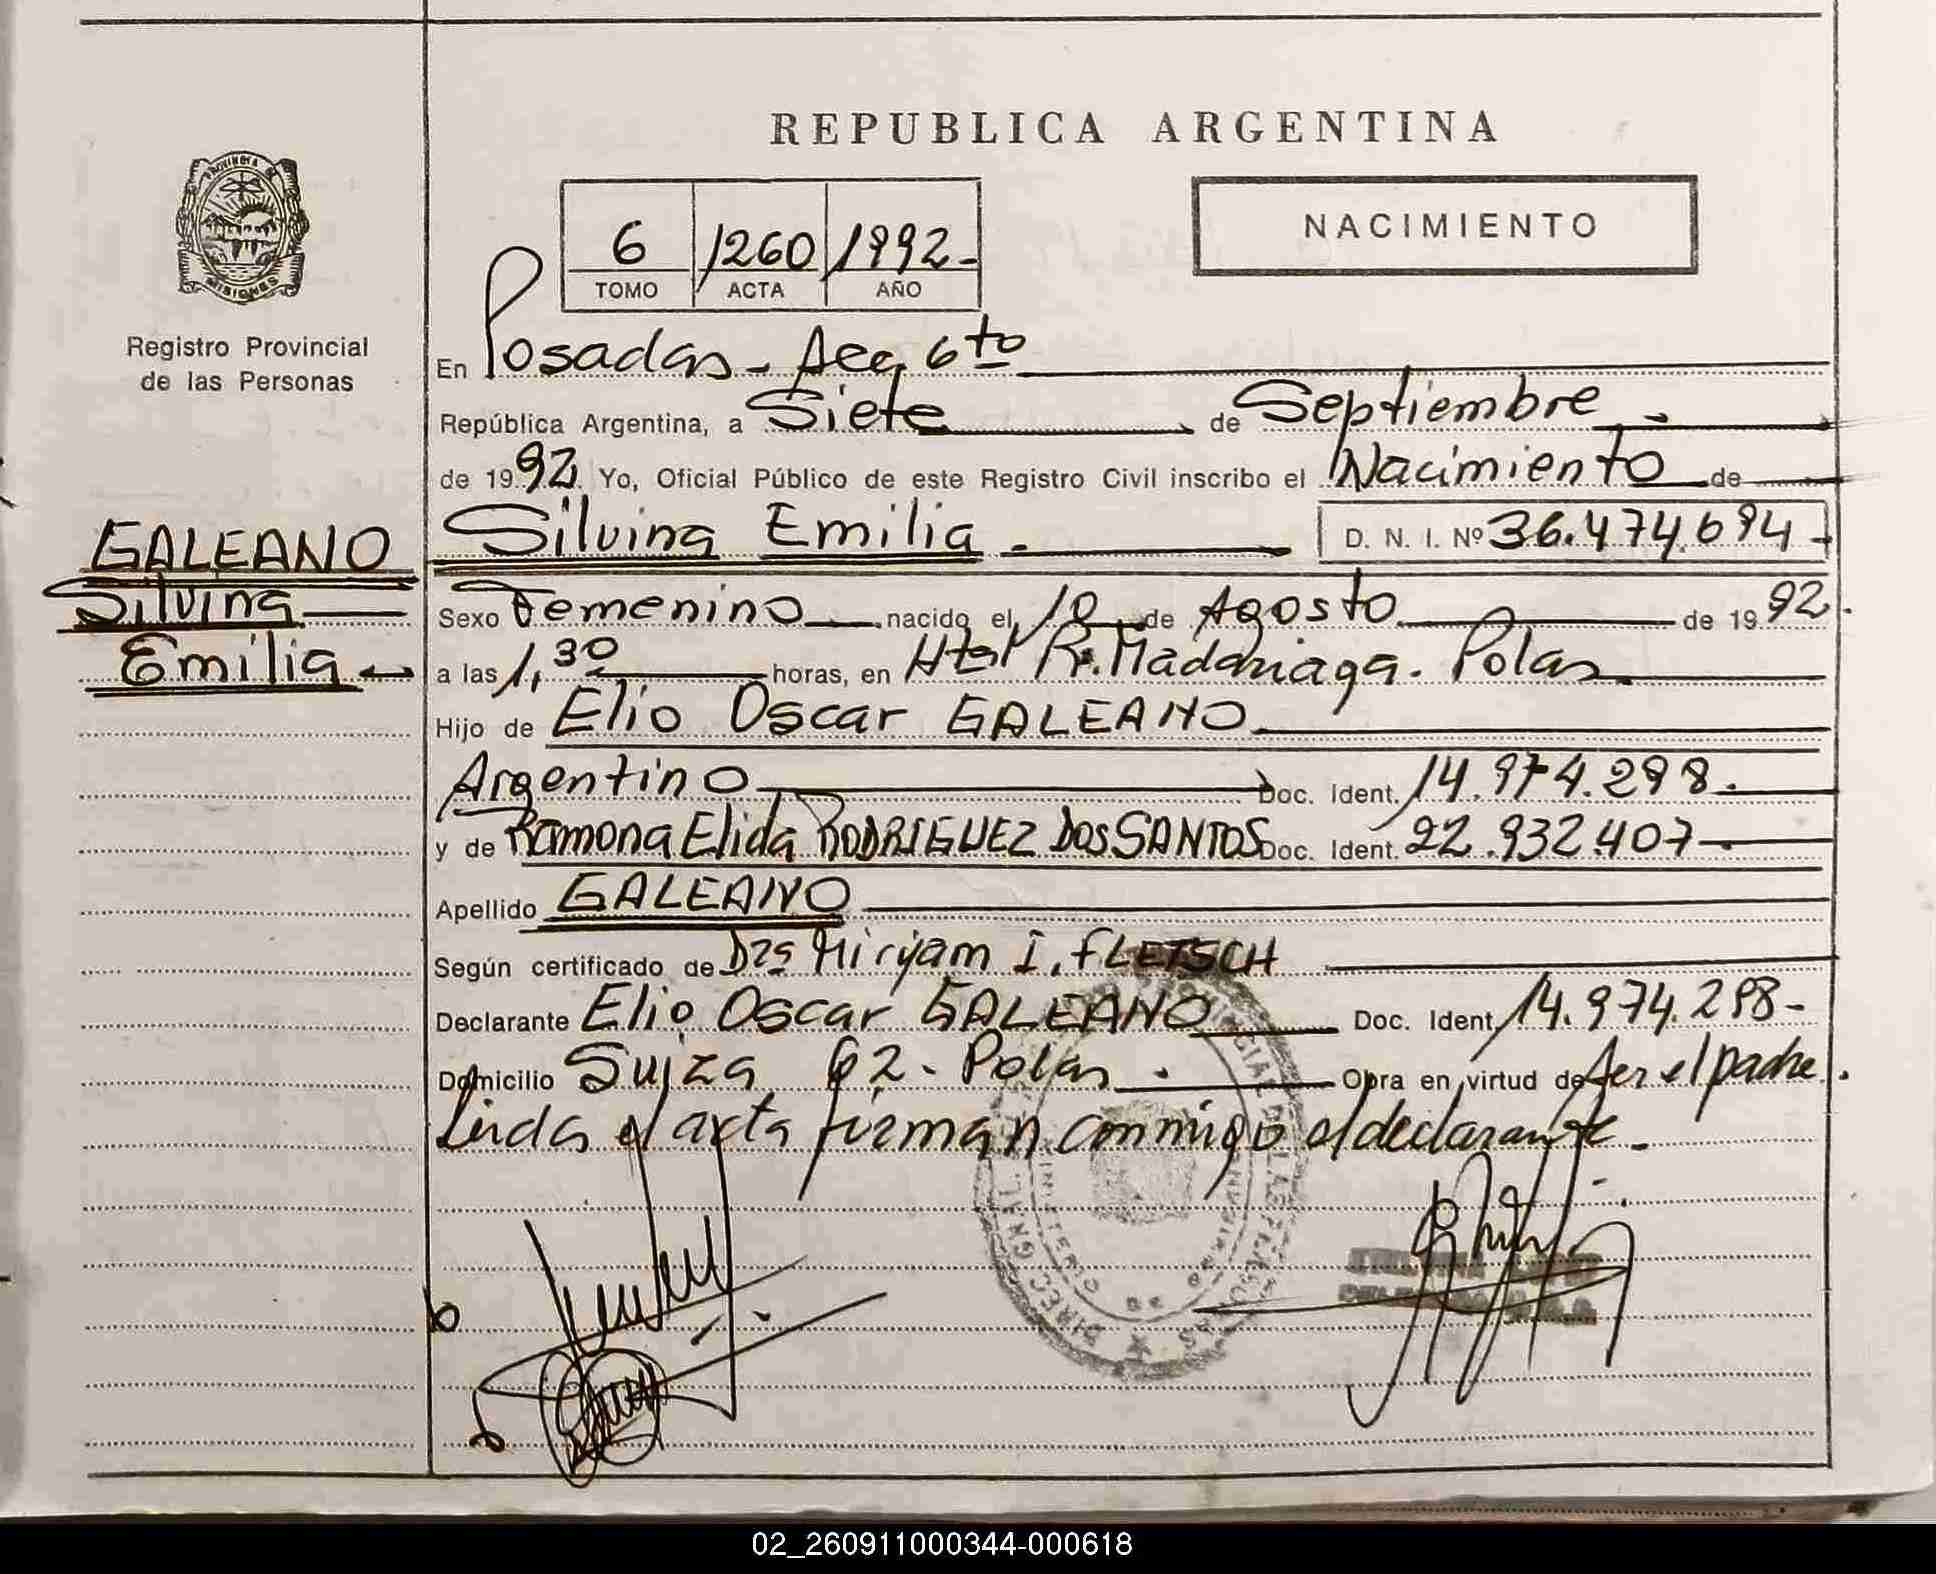 REPUBLICA ARGENTINA
NACIMIENTO
6 1260 1992.-
TOMO ACTA AÑO
PROVINCIA DE
MISIONES
Registro Provincial
de las Personas
En Posadas - Secc 6to
República Argentina, a Siete de Septiembre.-
de 1992. Yo, Oficial Público de este Registro Civil inscribo el Nacimiento de
GALEANO
Silvina
Emilia
Silvina Emilia.- D. N. I. Nº 36.474.694-
Sexo Femenino nacido el 10 de Agosto de 1992.
a las 1,30 horas, en Htal R. Madariaga. Pdas
Hijo de Elio Oscar GALEANO
Argentino Doc. Ident. 14.974.298.
y de Ramona Elida RODRIGUEZ DOS SANTOS Doc. Ident. 22.932.407-
Apellido GALEANO
Según certificado de Dra Miryam I. FLEISCH
Declarante Elio Oscar GALEANO Doc. Ident. 14.974.298-
Domicilio Suiza 62 - Pdas. Obra en virtud de Ser el padre.
Leida el acta firman conmigo el declarante.-
02_260911000344-000618